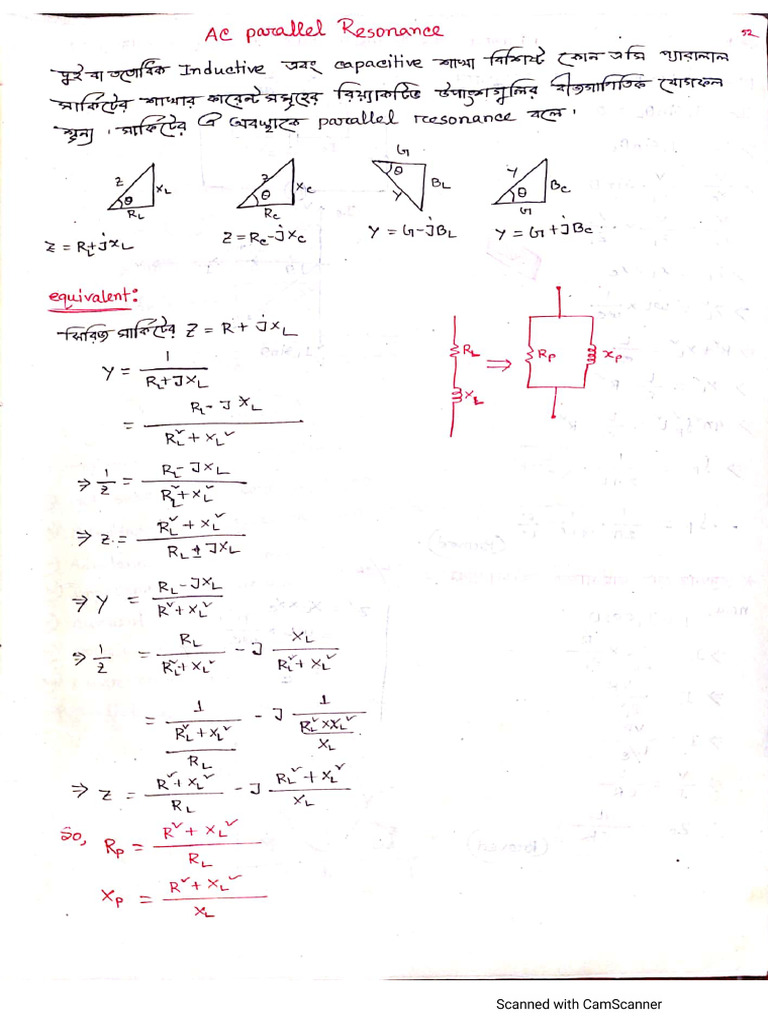 AC parallel Resonance
52
দুই বা ততোধিক Inductive এবং capacitive শাখা বিশিষ্ট কোন এসি প্যারালাল
সার্কিটের শাখার কারেন্ট সমূহের রিয়্যাকটিভ উপাংশগুলির বীজগাণিতিক যোগফল
শূন্য। সার্কিটের ঐ অবস্থাকে parallel resonance বলে।
Z XL θ RL
Z Xc θ Rc
G θ BL Y
Y Bc θ G
Z = RL+jXL
Z = Rc-jXc
Y = G-jBL
Y = G+jBc
equivalent:
সিরিজ সার্কিটের Z = R + jXL
RL ⇒ Rp Xp
XL
Y = 1 / (RL+JXL)
= (RL - J XL) / (RL² + XL²)
⇒ 1/Z = (RL - JXL) / (RL² + XL²)
⇒ Z = (RL² + XL²) / (RL ± JXL)
⇒ Y = (RL - JXL) / (R² + XL²)
⇒ 1/Z = RL / (RL² + XL²) - J XL / (RL² + XL²)
= 1 / ((RL² + XL²) / RL) - J 1 / ((RL² × XL²) / XL)
⇒ Z = (R² + XL²) / RL - J (RL² + XL²) / XL
So, Rp = (R² + XL²) / RL
Xp = (R² + XL²) / XL
Scanned with CamScanner